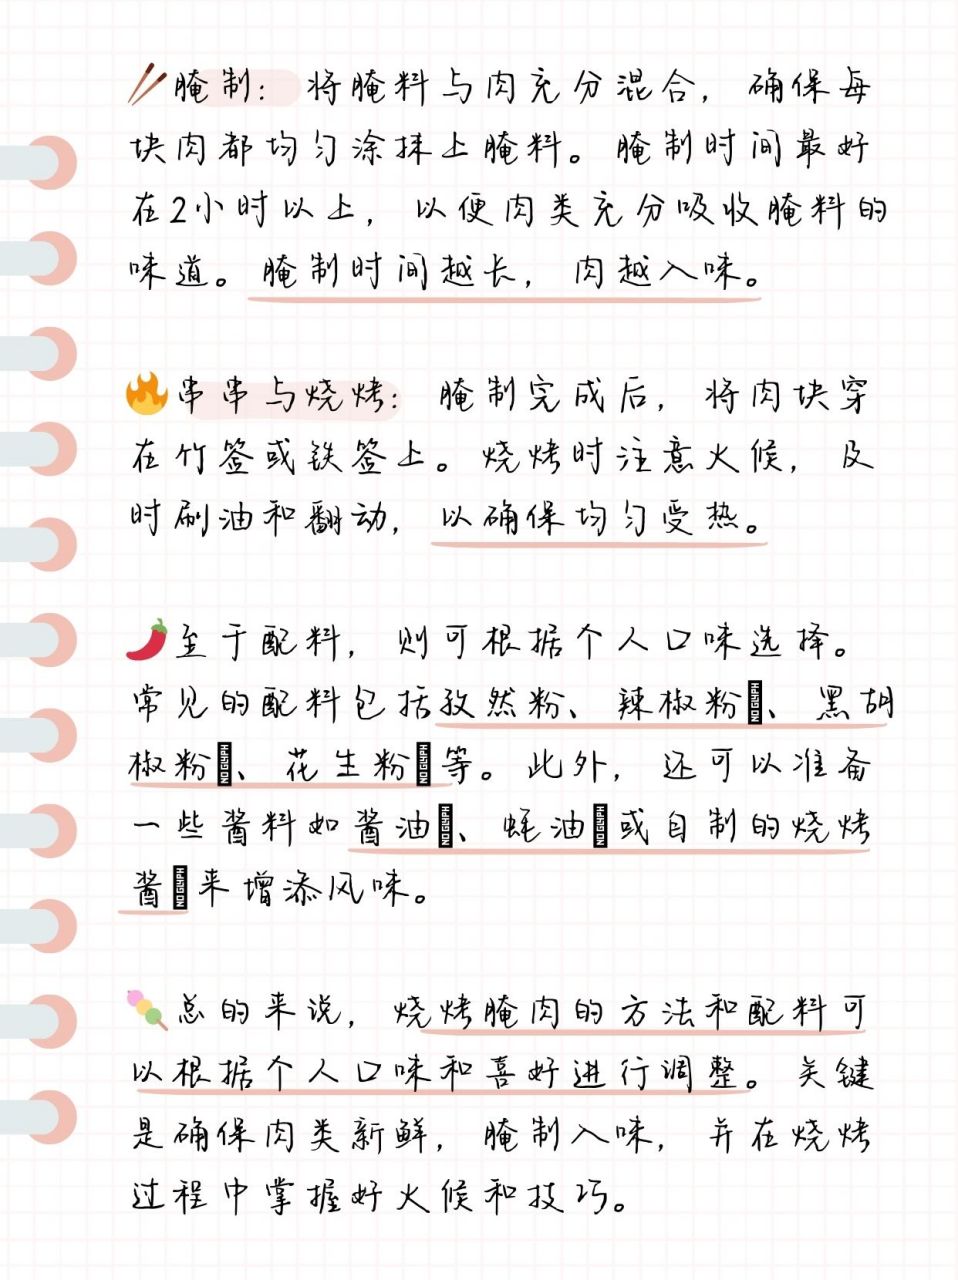 🥢腌制：将腌料与肉充分混合，确保每
块肉都均匀涂抹上腌料。腌制时间最好
在2小时以上，以便肉类充分吸收腌料的
味道。腌制时间越长，肉越入味。
🔥串串与烧烤：腌制完成后，将肉块穿
在竹签或铁签上。烧烤时注意火候，及
时刷油和翻动，以确保均匀受热。
🌶️至于配料，则可根据个人口味选择。
常见的配料包括孜然粉、辣椒粉NO GLYPH、黑胡
椒粉NO GLYPH、花生粉NO GLYPH等。此外，还可以准备
一些酱料如酱油NO GLYPH、蚝油NO GLYPH或自制的烧烤
酱NO GLYPH来增添风味。
🍡总的来说，烧烤腌肉的方法和配料可
以根据个人口味和喜好进行调整。关键
是确保肉类新鲜，腌制入味，并在烧烤
过程中掌握好火候和技巧。